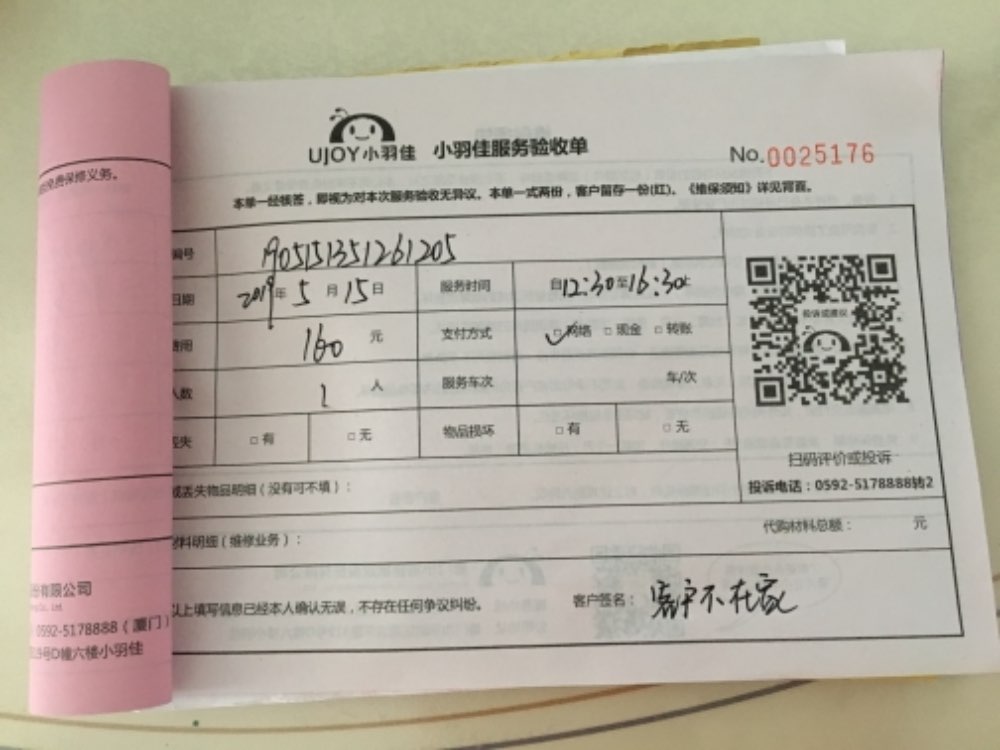 UJOY小羽佳 小羽佳服务验收单 No.0025176
本单一经核签，即视为对本次服务验收无异议。本单一式两份，客户留存一份(红)。《维保须知》详见背面。
免费保修义务。
编号 A05151351261205
日期 2019年5月15日 服务时间 自12:30至16:30止
费用 160 元 支付方式 ✓□网络 □现金 □转账
人数 1 人 服务车次 车/次
丢失 □有 □无 物品损坏 □有 □无
投诉或建议
扫码评价或投诉
投诉电话：0592-5178888转2
或丢失物品明细（没有可不填）：
材料明细（维修业务）： 代购材料总额： 元
以上填写信息已经本人确认无误，不存在任何争议纠纷。 客户签名：客户不在家
份有限公司
Co., Ltd
0592-5178888（厦门）
819号D幢六楼小羽佳